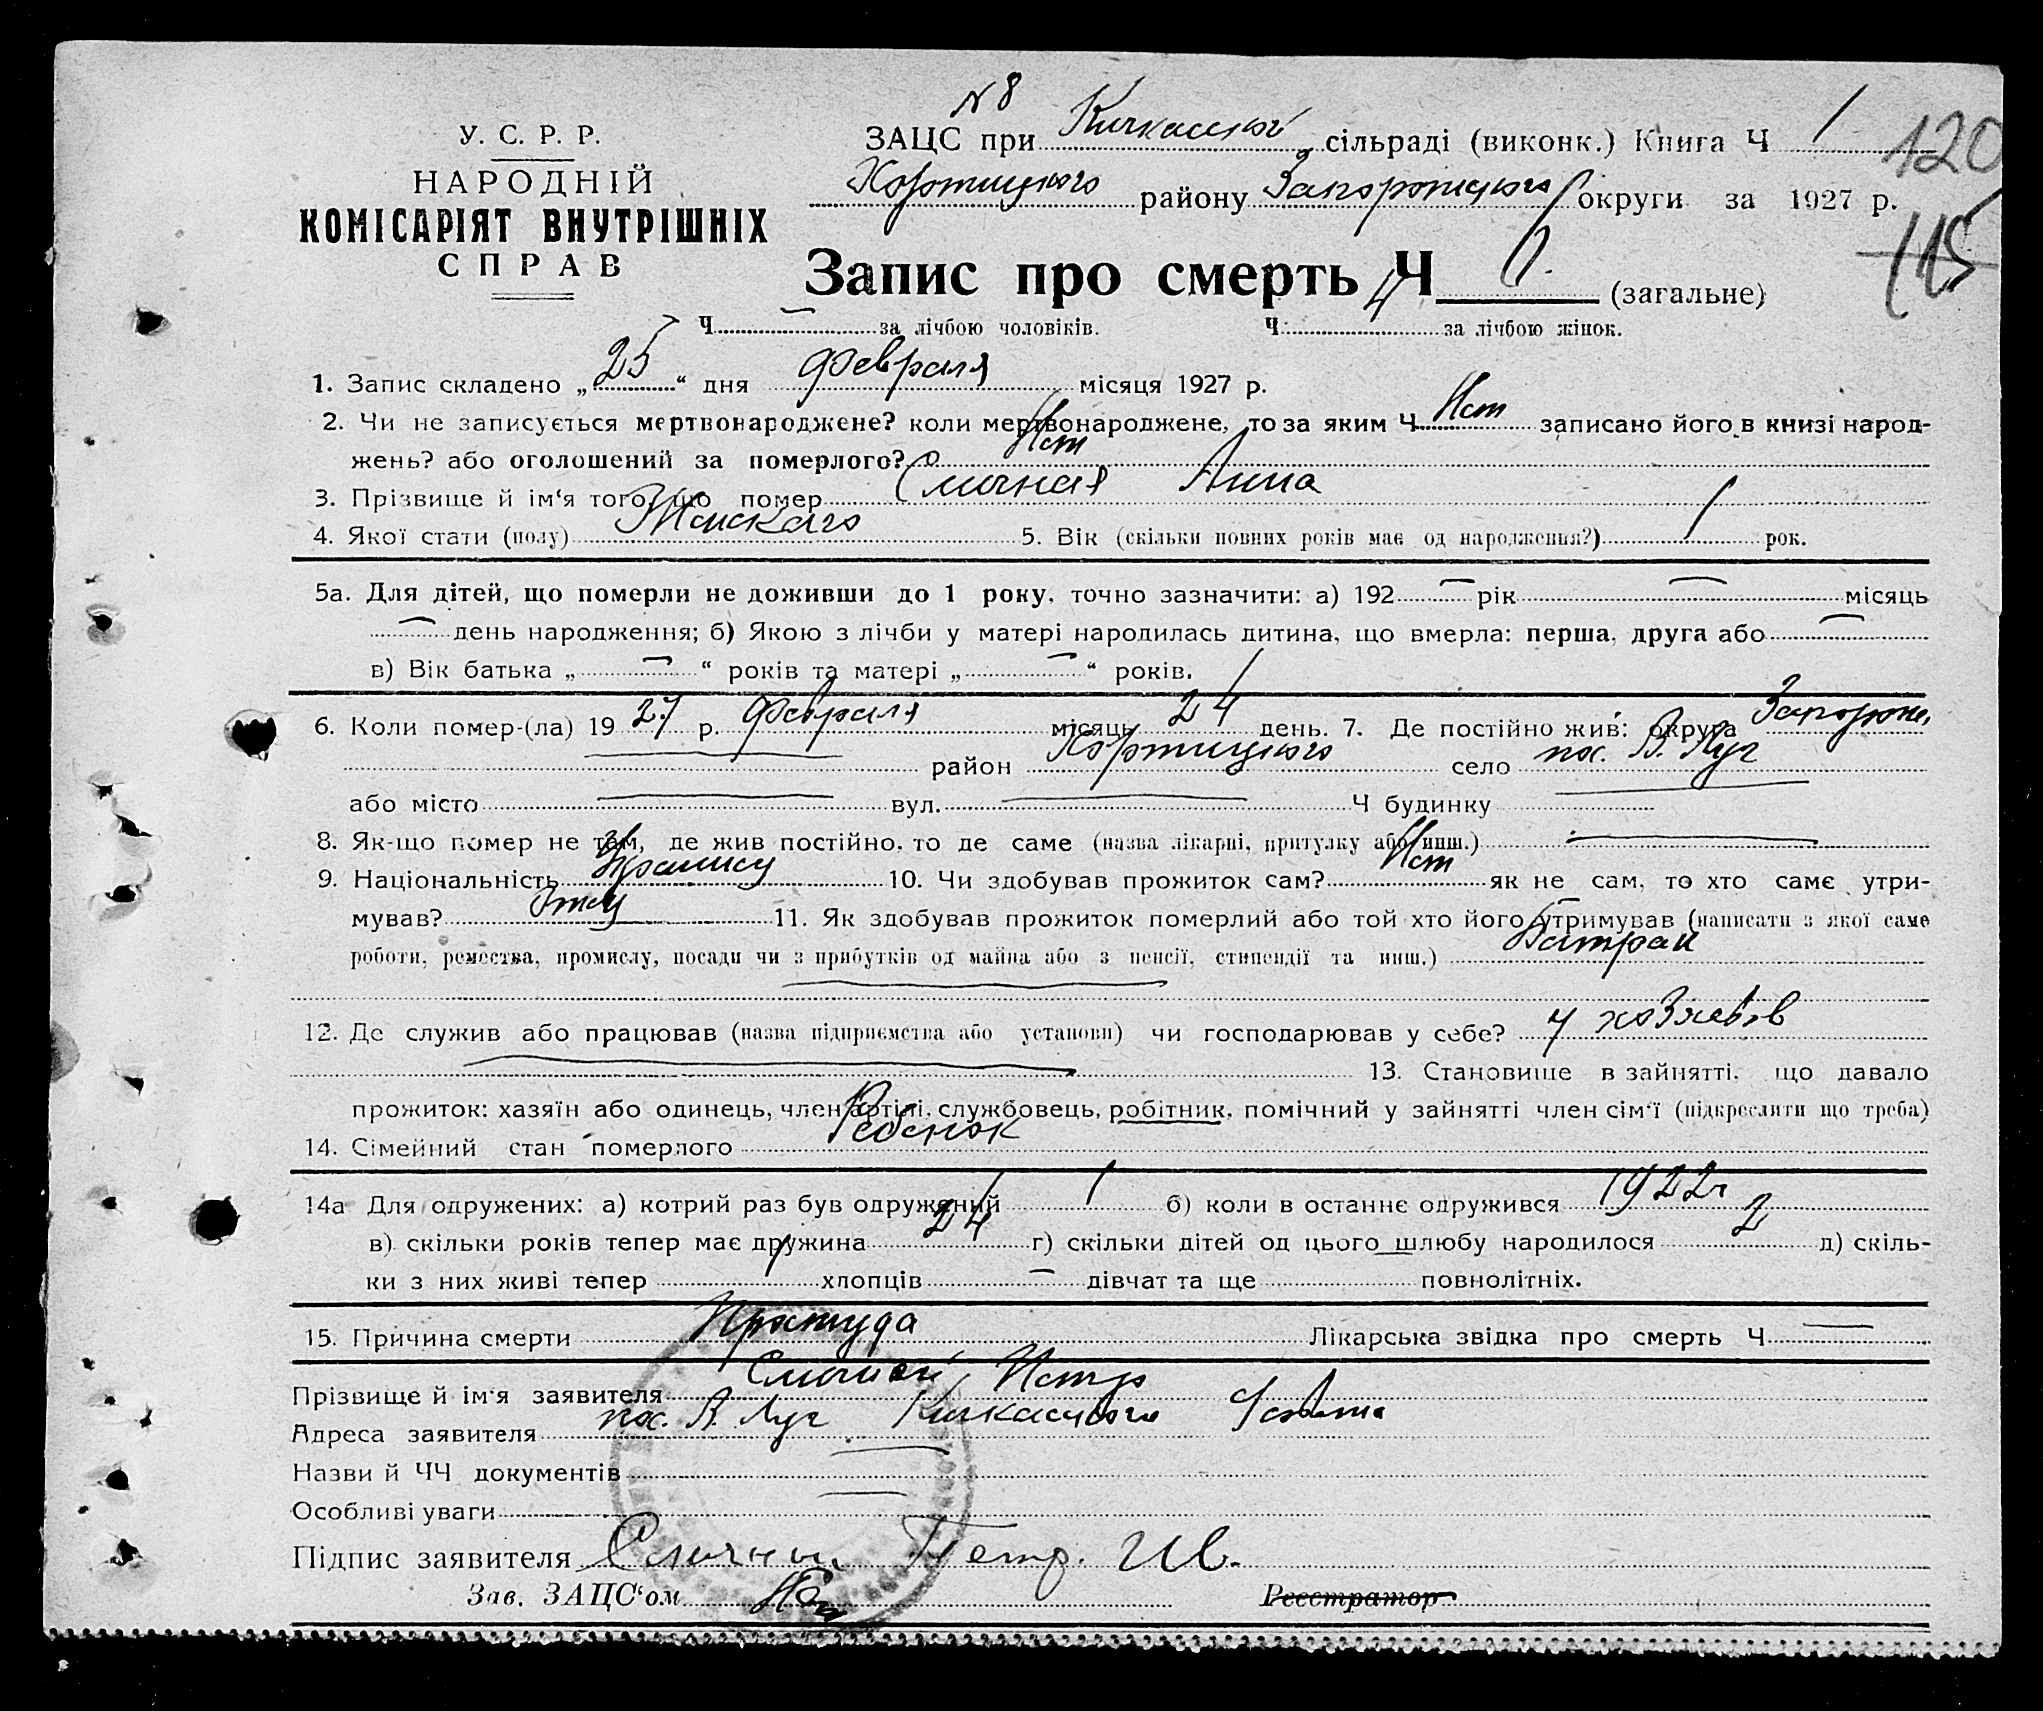 N 8
У. С. Р. Р.
НАРОДНІЙ
КОМІСАРІЯТ ВНУТРІШНІХ
СПРАВ
ЗАЦС при Кичкасской сільраді (виконк.) Книга Ч 1
120
Хортицкого району Запорожского округи за 1927 р.
115
Запис про смерть Ч (загальне)
Ч — за лічбою чоловіків. Ч 4 за лічбою жінок.
1. Запис складено „25“ дня февраля місяця 1927 р.
2. Чи не записується мертвонароджене? коли мертвонароджене, то за яким Ч Нет записано його в книзі народ-
жень? або оголошений за померлого? Нет
3. Прізвище й ім‘я того, що помер Смочная Анна
4. Якої стати (полу) Женского 5. Вік (скільки повних років має од народження?) 1 рок.
5а. Для дітей, що померли не доживши до 1 року, точно зазначити: а) 192 — рік — місяць
— день народження; б) Якою з лічби у матері народилась дитина, що вмерла: перша, друга або —
в) Вік батька „ — “ років та матері „ — “ років.
6. Коли помер-(ла) 1927 р. февраля місяць 24 день. 7. Де постійно жив: округа Запорож.
— район Хортицкого село пос. В. Луг
або місто — вул. — Ч будинку —
8. Як-що помер не там, де жив постійно, то де саме (назва лікарні, притулку або инш.) —
9. Національність 10. Чи здобував прожиток сам? Нет як не сам, то хто саме утри-
мував? Отец 11. Як здобував прожиток померлий або той хто його утримував (написати з якої саме
роботи, ремества, промислу, посади чи з прибутків од майна або з пенсії, стипендії та инш.) Батрак
—
12. Де служив або працював (назва підприємства або установи) чи господарював у себе? у хозяев
— 13. Становище в зайнятті, що давало
прожиток: хазяїн або одинець, член артілі, службовець, робітник, помічний у зайнятті член сім‘ї (підкреслити що треба)
14. Сімейний стан померлого Ребенок
14а Для одружених: а) котрий раз був одружений 1 б) коли в останнє одружився 1922г
в) скільки років тепер має дружина 24 г) скільки дітей од цього шлюбу народилося 2 д) скіль-
ки з них живі тепер 1 хлопців — дівчат та ще повнолітніх.
15. Причина смерти Простуда Лікарська звідка про смерть Ч —
Прізвище й ім‘я заявителя Смочной Петр
Адреса заявителя пос. В. Луг Кичкасского
Назви й ЧЧ документів —
Особливі уваги —
Підпис заявителя Петр. Ив.
Зав. ЗАЦС‘ом
Реєстратор